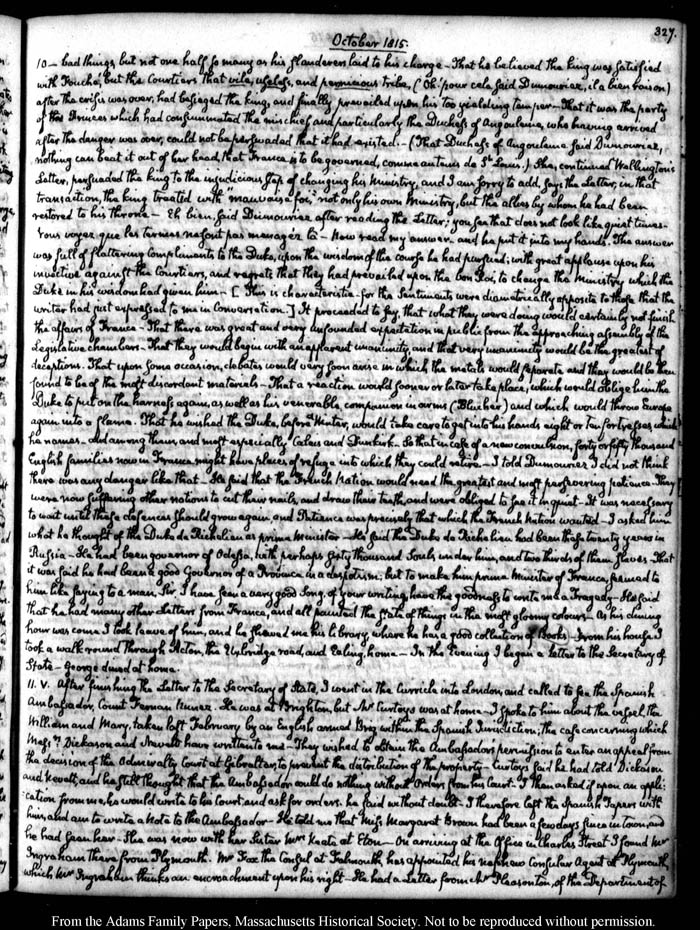 327.
October 1815.
10 — bad things, but not one half so many as his slanderers laid to his charge — That he believed the king was satisfied
with Fouché, but the Courtiers that vile, useless, and pernicious tribe, (Oh! pour cela said Dumouriez, il a bien raison)
after the crisis was over, had besieged the king, and finally prevailed upon his too yielding temper — That it was the party
of the Princes which had consummated the mischief and particularly the Duchess of Angouleme, who having arrived
after the danger was over, could not be perswaded that it had existed. — (That Duchess of Angouleme said Dumouriez,
nothing can beat it out of her head, that France is to be governed, comme au tems de St. Louis.) She, continued Wellington's
Letter, persuaded the king to the injudicious step of changing his Ministry, and I am sorry to add, says the Letter, in that
transaction, the king treated with "mauvaise foi," not only his own Ministry, but the allies by whom he had been
restored to his throne — Eh bien, said Dumouriez after reading the Letter; you see that does not look like quiet times.
Vous voyez que les termes ne sont pas menagés là — Now read my answer. and he put it into my hands. The answer
was full of flattering compliments to the Duke, upon the wisdom of the course he had pursued; with great applause upon his
invective against the Courtiers, and regrets that they had prevailed upon the bon Roi, to change the Ministry which the
Duke in his wisdom had given him — [This is characteristic — for the Sentiments were diametrically opposite to those that the
writer had just expressed to me in Conversation.] It proceeded to say, that what they were doing would certainly not finish
the affairs of France — That there was great and very unfounded expectation in public from the approaching assembly of the
Legislative chambers. That they would begin with an apparent unanimity, and that very unanimity would be the greatest of
deceptions. That upon some occasion, debates would very soon arise in which the metals would separate and they would be then
found to be of the most discordant materials — That a reaction would sooner or later take place, which would oblige him the
Duke to put on the harness again, as well as his venerable companion in arms (Blucher) and which would throw Europe
again into a flame. That he wished the Duke, before Winter, would take care to get into his hands eight or ten fortresses which
he names — and among them, and most especially Calais and Dunkirk. So that in case of a new convulsion, forty or fifty thousand
English families now in France might have places of refuge into which they could retire. — I told Dumouriez I did not think
there was any danger like that — He said that the French Nation would need the greatest and most persevering patience. They
were now suffering other nations to cut their nails, and draw their teeth, and were obliged to see it in quiet — It was necessary
to wait until these defences should grow again, and Patience was precisely that which the French Nation wanted — I asked him
what he thought of the Duke de Richelieu as prime Minister — He said the Duke de Richelieu had been these twenty years in
Russia — He had been governor of Odessa, with perhaps sixty thousand Souls under him, and two thirds of them Slaves. That
it was said he had been a good Governor of a Province in a despotism: but to make him prime Minister of France, seemed to
him like saying to a man, Sir, I have seen a very good Song, of your writing, have the goodness to write me a Tragedy — He said
that he had many other Letters from France, and all painted the state of things in the most gloomy colours — As his dining
hour was come I took leave of him, and he shewed me his library, where he has a good collection of Books — From his house I
took a walk round through Acton, the Uxbridge road, and Ealing, home — In the Evening I began a letter to the Secretary of
State — George dined at home.
11. V. After finishing the Letter to the Secretary of State, I went in the Curricle into London, and called to see the Spanish
Ambassador, Count Fernan Nunez. He was at Brighton, but Mr Curtoys was at home — I spoke to him about the vessel, the
William and Mary, taken last February by an English armed Brig within the Spanish Jurisdiction; the case concerning which
Messrs Dickason and Nevett have written to me — They wished to obtain the Ambassador's permission to enter an appeal from
the decision of the Admiralty Court at Gibraltar, to prevent the distribution of the property — Curtoys said he had told Dickason
and Nevett, and he still thought that the Ambassador could do nothing without Orders from his Court — I then asked if upon an appli-
cation from me, he would write to his Court and ask for orders. he said without doubt. I therefore left the Spanish Papers with
him, and am to write a Note to the Ambassador — He told me that Miss Margaret Brown had been a few days since in town, and
he had seen her — She was now with her Sister Mrs Keate at Eton — On arriving at the Office in Charles Street I found Mr
Ingraham there from Plymouth. Mr Fox the Consul at Falmouth, has appointed his nephew Consular Agent at Plymouth,
which Mr Ingraham thinks an encroachment upon his right — He had a Letter from Mr Pleasonton, of the Department of
From the Adams Family Papers, Massachusetts Historical Society. Not to be reproduced without permission.